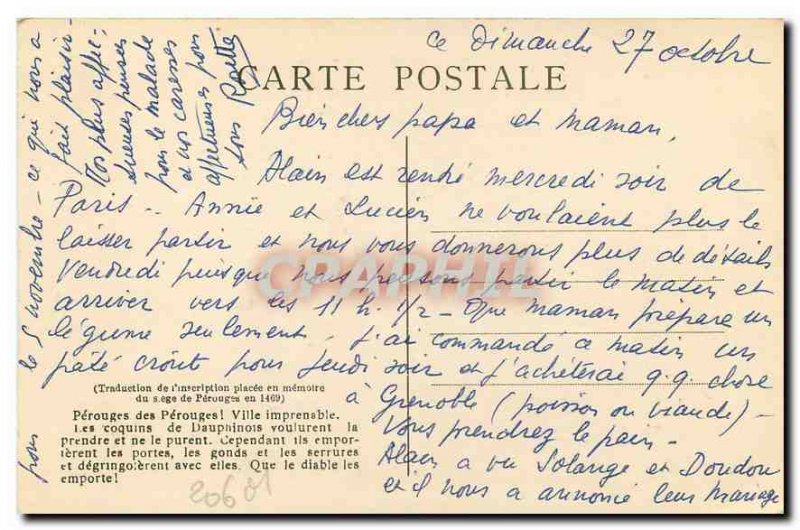 ce Dimanche 27 octobre
CARTE POSTALE
Bien chers papa et maman,
Alain est rentré mercredi soir de
Paris.. Annie et Lucien ne voulaient plus le
laisser partir et nous vous donnerons plus de détails
Vendredi puisque nous pensons partir le matin et
arriver vers les 11 h. 1/2 - Que maman prépare un
légume seulement, j'ai commandé ce matin un
pâté croût pour Jeudi soir et j'achèterai q.q. chose
à Grenoble (poisson ou viande) -
Vous prendrez le pain -
Alain a vu Solange et Doudou
et il nous a annoncé leur mariage
pour le 5 novembre - ce qui nous a
fait plaisir -
Nos plus affec-
tueuses pensées
pour le malade
et nos caresses
affectueuses pour
tous
(Traduction de l'inscription placée en mémoire
du siège de Pérouges en 1469)
Pérouges des Pérouges! Ville imprenable.
Les coquins de Dauphinois voulurent la
prendre et ne le purent. Cependant ils empor-
tèrent les portes, les gonds et les serrures
et dégringolèrent avec elles. Que le diable les
emporte!
20601
CPAPHIL